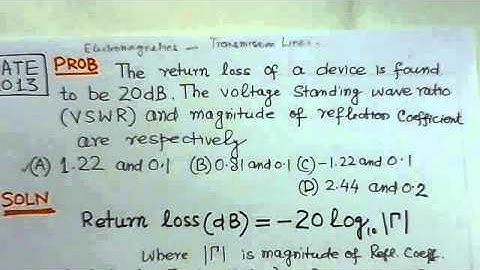 Electromagnetics — Transmission Lines.
ATE PROB The return loss of a device is found
013 to be 20dB. The voltage Standing wave ratio
(VSWR) and magnitude of reflection coefficient
are respectively
(A) 1.22 and 0.1 (B) 0.81 and 0.1 (C) -1.22 and 0.1
(D) 2.44 and 0.2
SOLN
Return loss(dB) = -20 log₁₀ |Γ|
Where |Γ| is magnitude of Refl. Coeff.